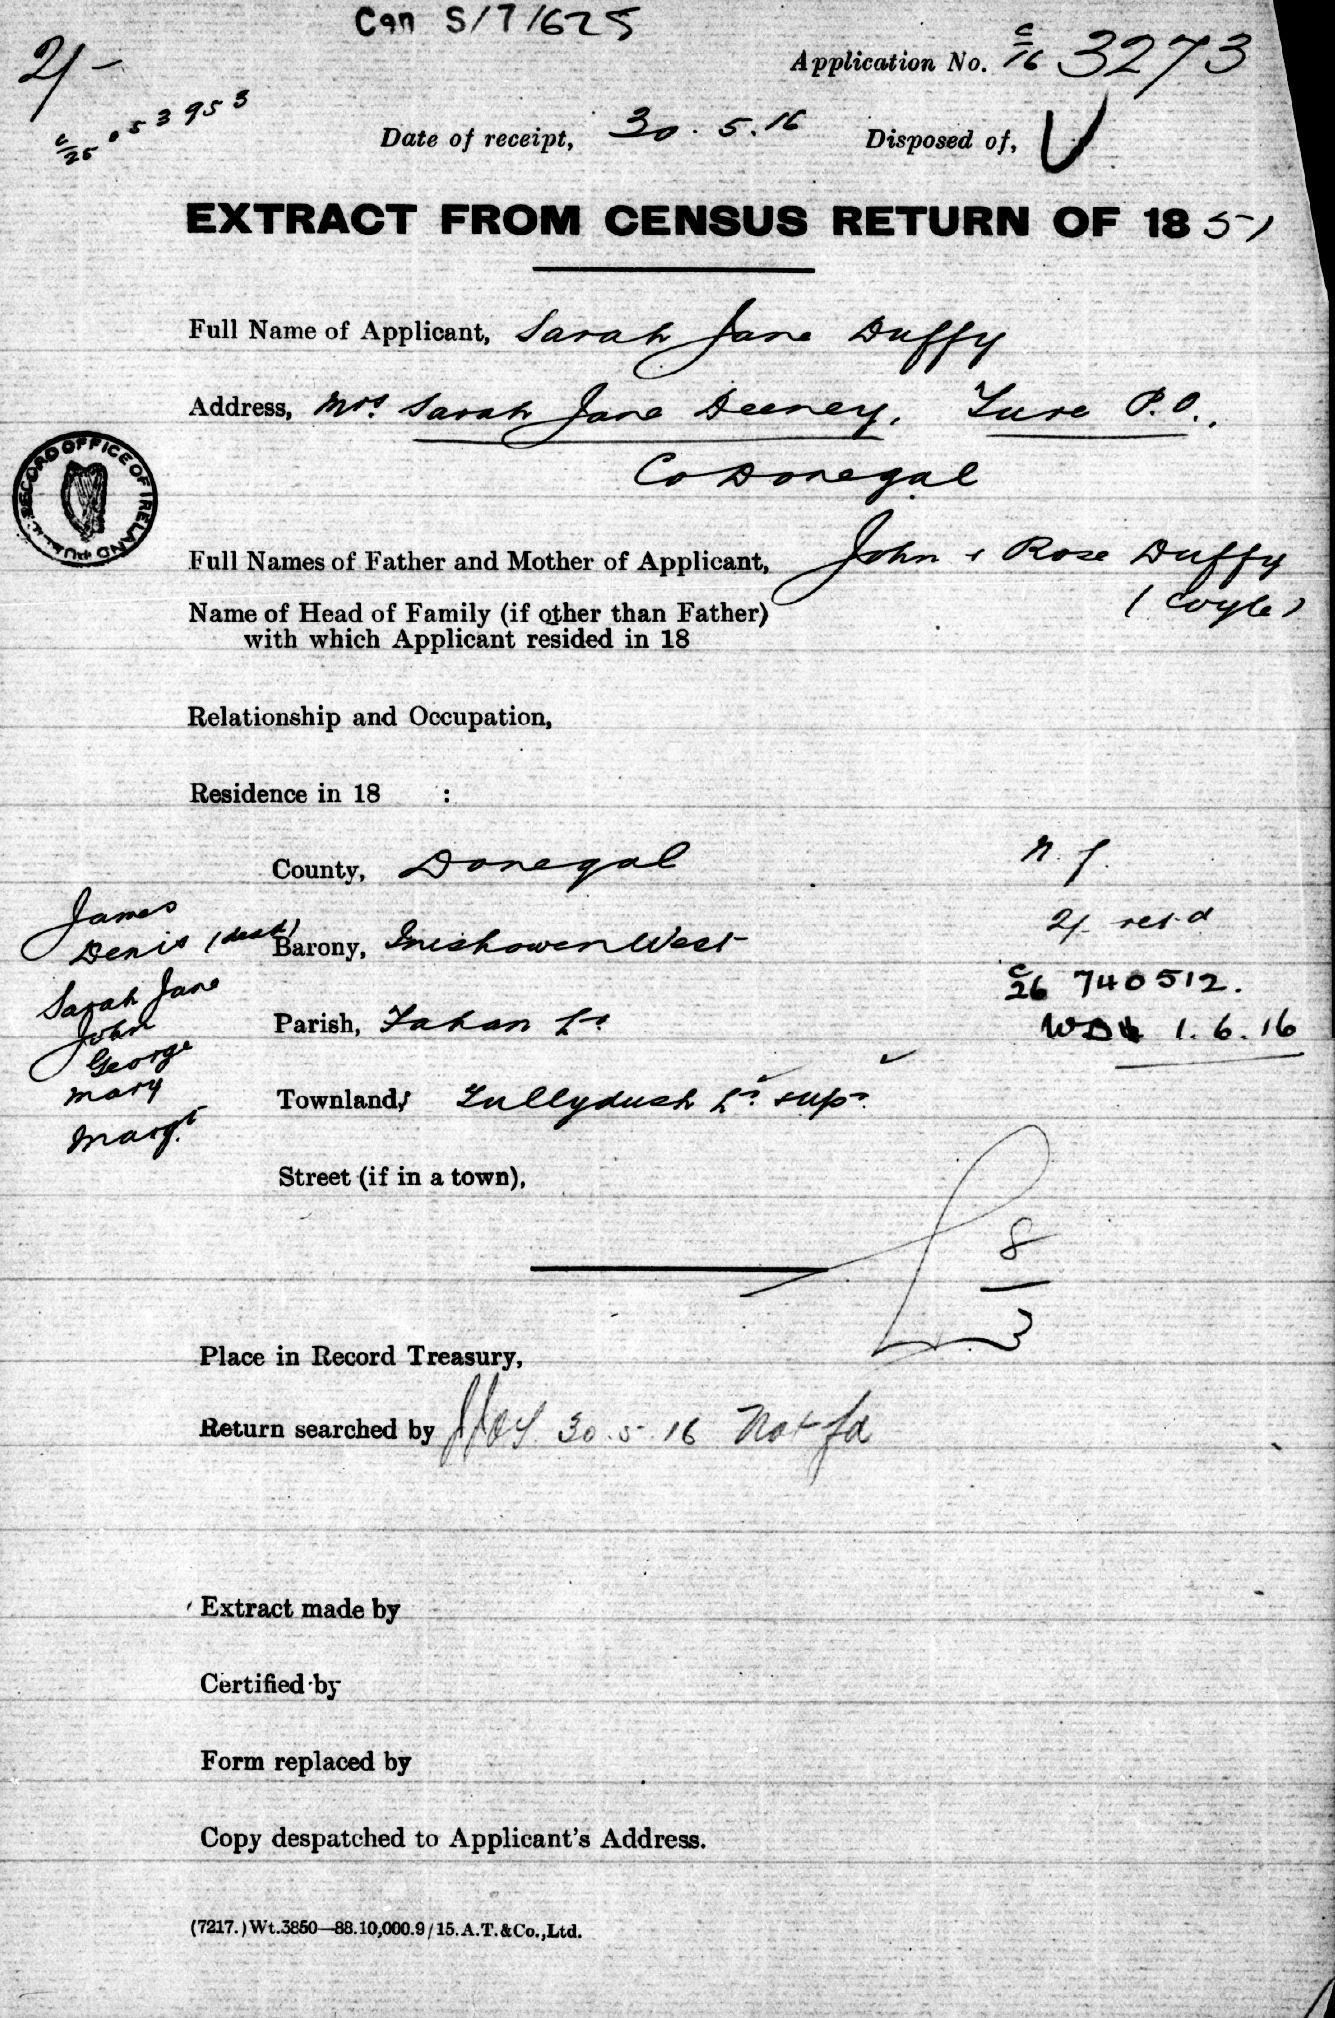 Cen S/7/625
2/-
Application No. C/16 3273
C/25 053953
Date of receipt, 30.5.16 Disposed of,
EXTRACT FROM CENSUS RETURN OF 1851
Full Name of Applicant, Sarah Jane Duffy
Address, Mrs. Sarah Jane Deeney, Fure P.O.,
Co Donegal
PUBLIC RECORD OFFICE OF IRELAND
Full Names of Father and Mother of Applicant, John & Rose Duffy
(Coyle)
Name of Head of Family (if other than Father)
with which Applicant resided in 18
Relationship and Occupation,
Residence in 18 :
County, Donegal
N. f.
James
Denis (dead)
Sarah Jane
John
George
Mary
Margt
Barony, Inishowen West
2/- ret-d
C/26 740512.
Parish, Fahan Lr.
1.6.16
Townland, Tullydush Lr. & upr.
Street (if in a town),
8
3
Place in Record Treasury,
Return searched by 30.5.16 Not fd
Extract made by
Certified by
Form replaced by
Copy despatched to Applicant's Address.
(7217.) Wt.3850—88.10,000.9/15.A.T.&Co.,Ltd.